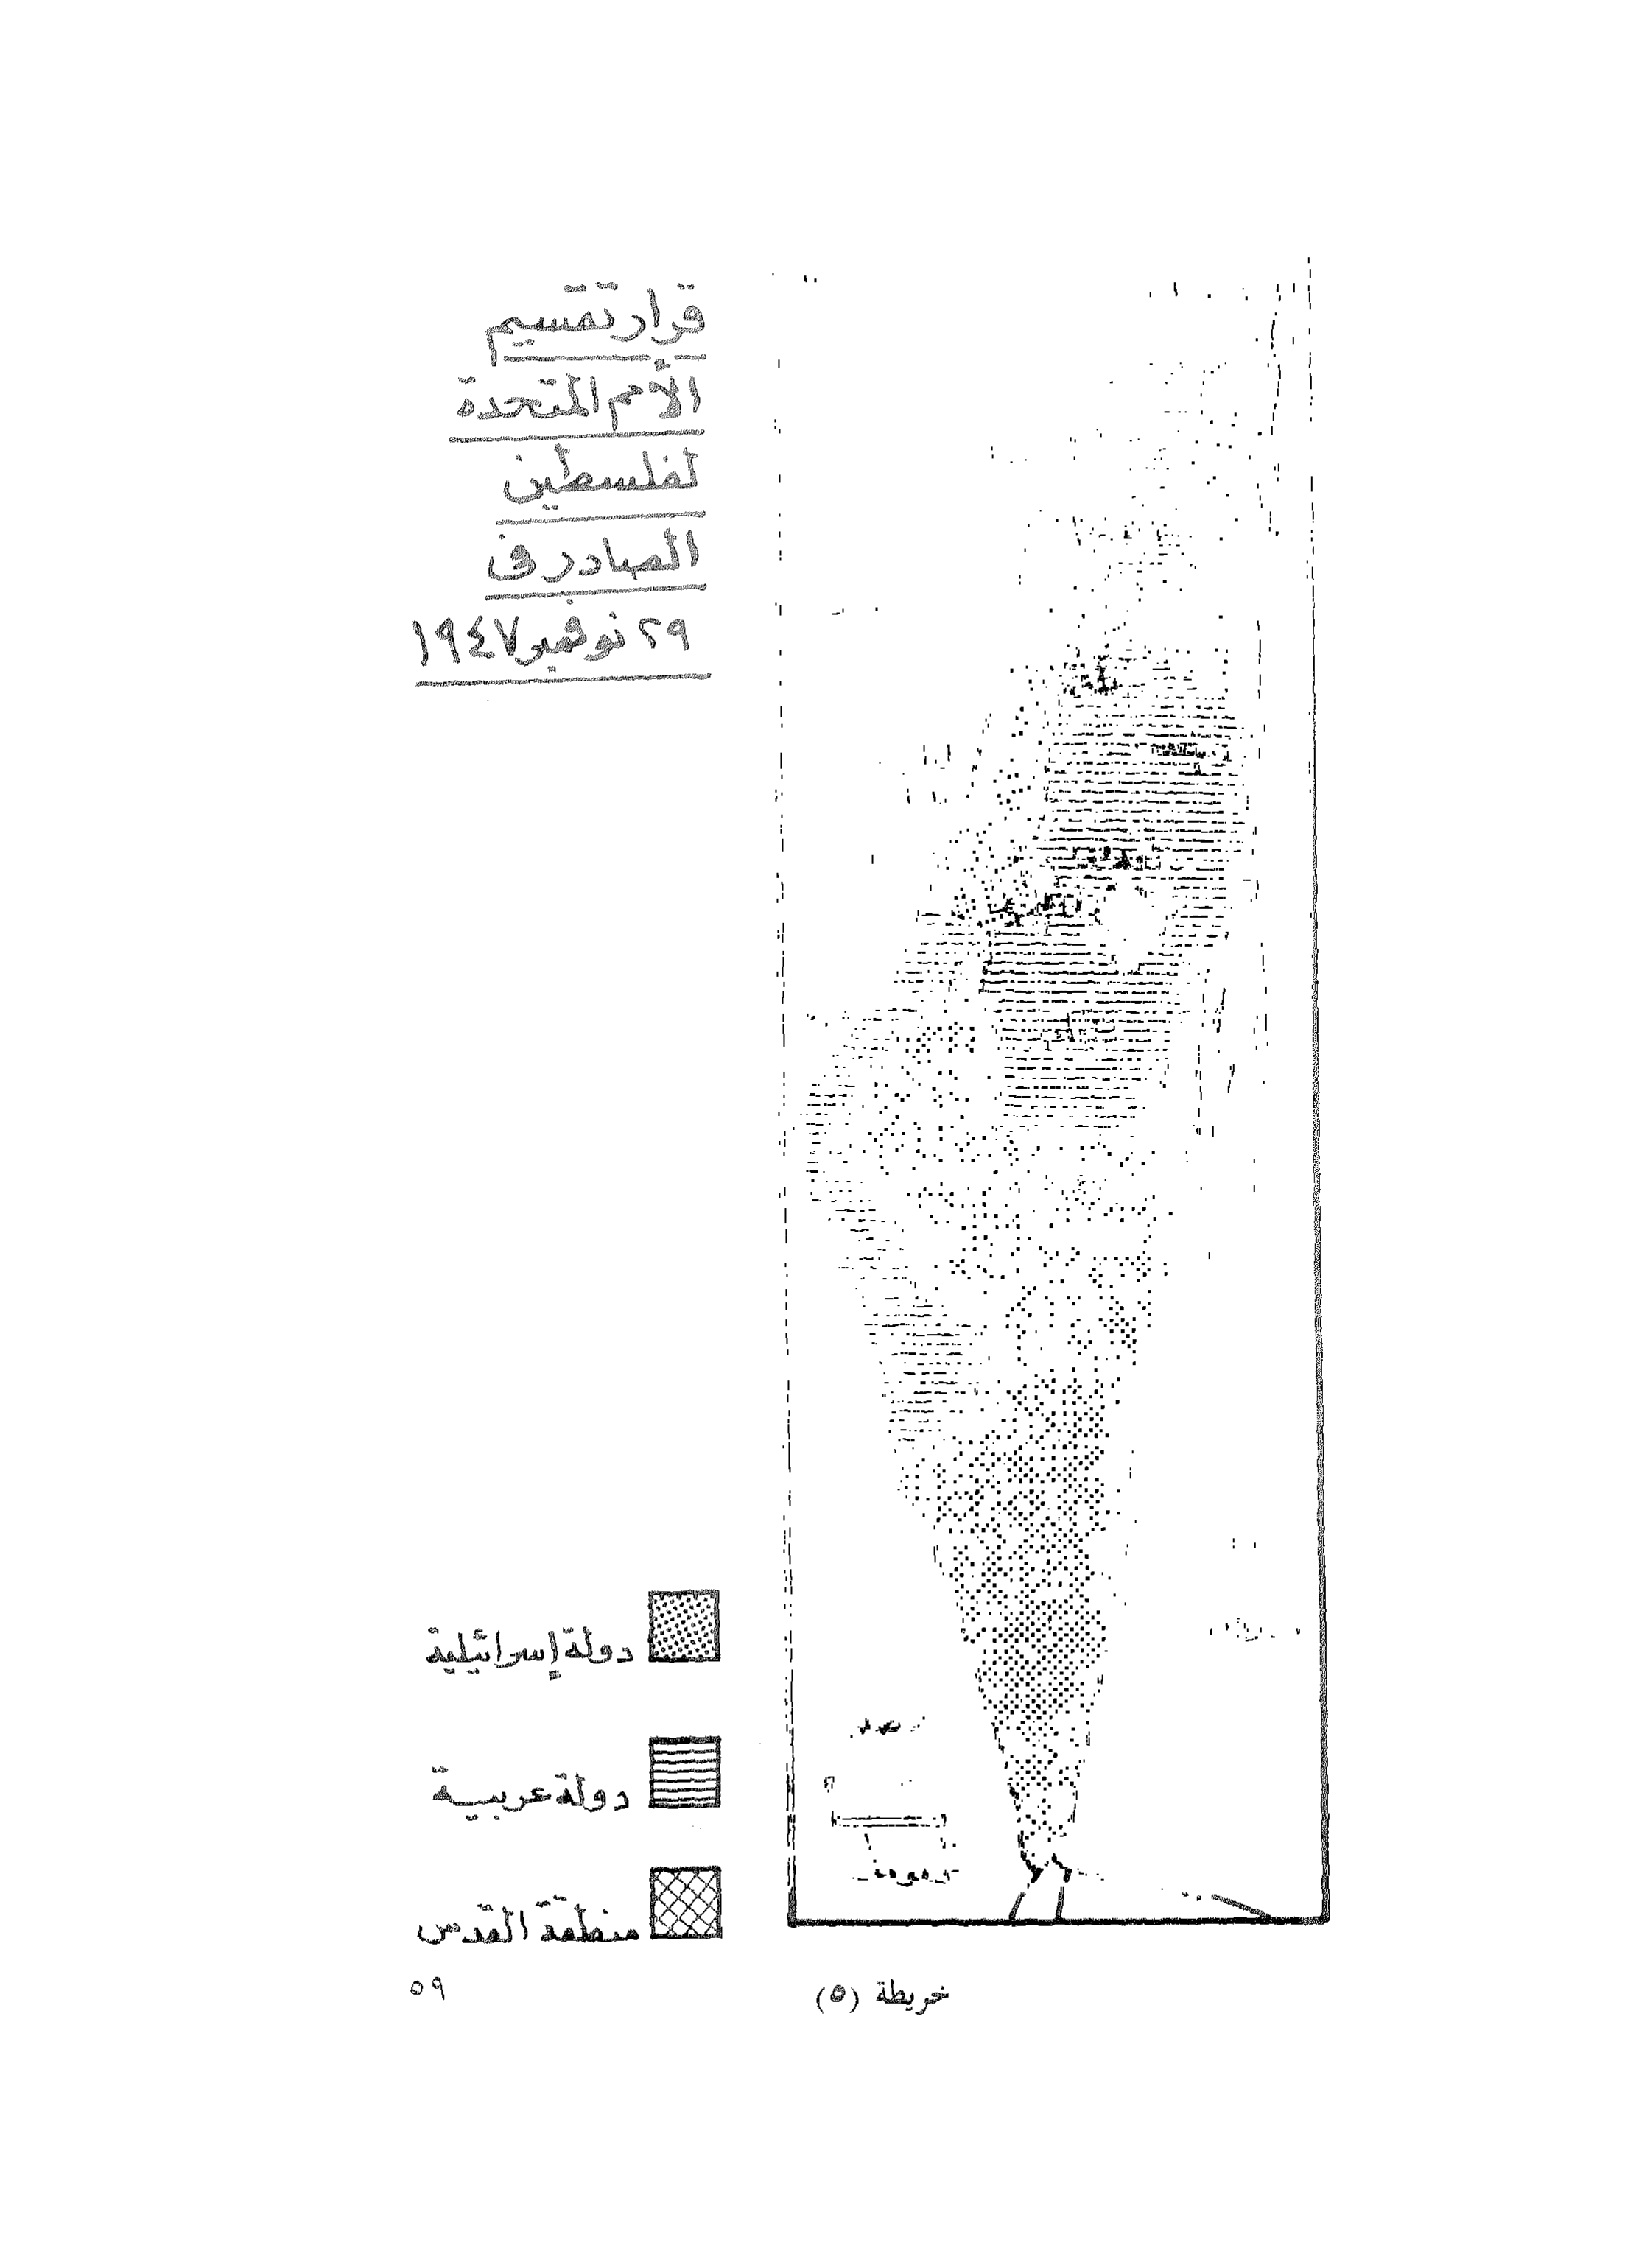 قرار تقسيم
الأمم المتحدة
لفلسطين
الصادر في
٢٩ نوفمبر ١٩٤٧
دولة إسرائيلية
دولة عربية
منطقة القدس
خريطة (٥)
٥٩